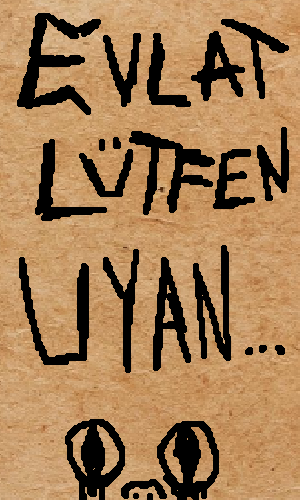 EVLAT
LÜTFEN
UYAN...